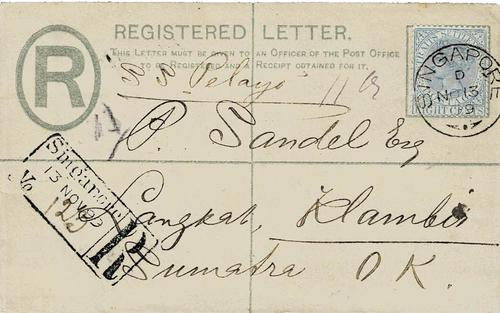 REGISTERED LETTER.
THIS LETTER MUST BE GIVEN TO AN OFFICER OF THE POST OFFICE
TO BE REGISTERED AND A RECEIPT OBTAINED FOR IT.
R
SINGAPORE
D
NO 13
Pelayo
P. Sandel Esq
Singapore
13 NOV
No 123
R
Langkat, Klambir
Sumatra O.K.